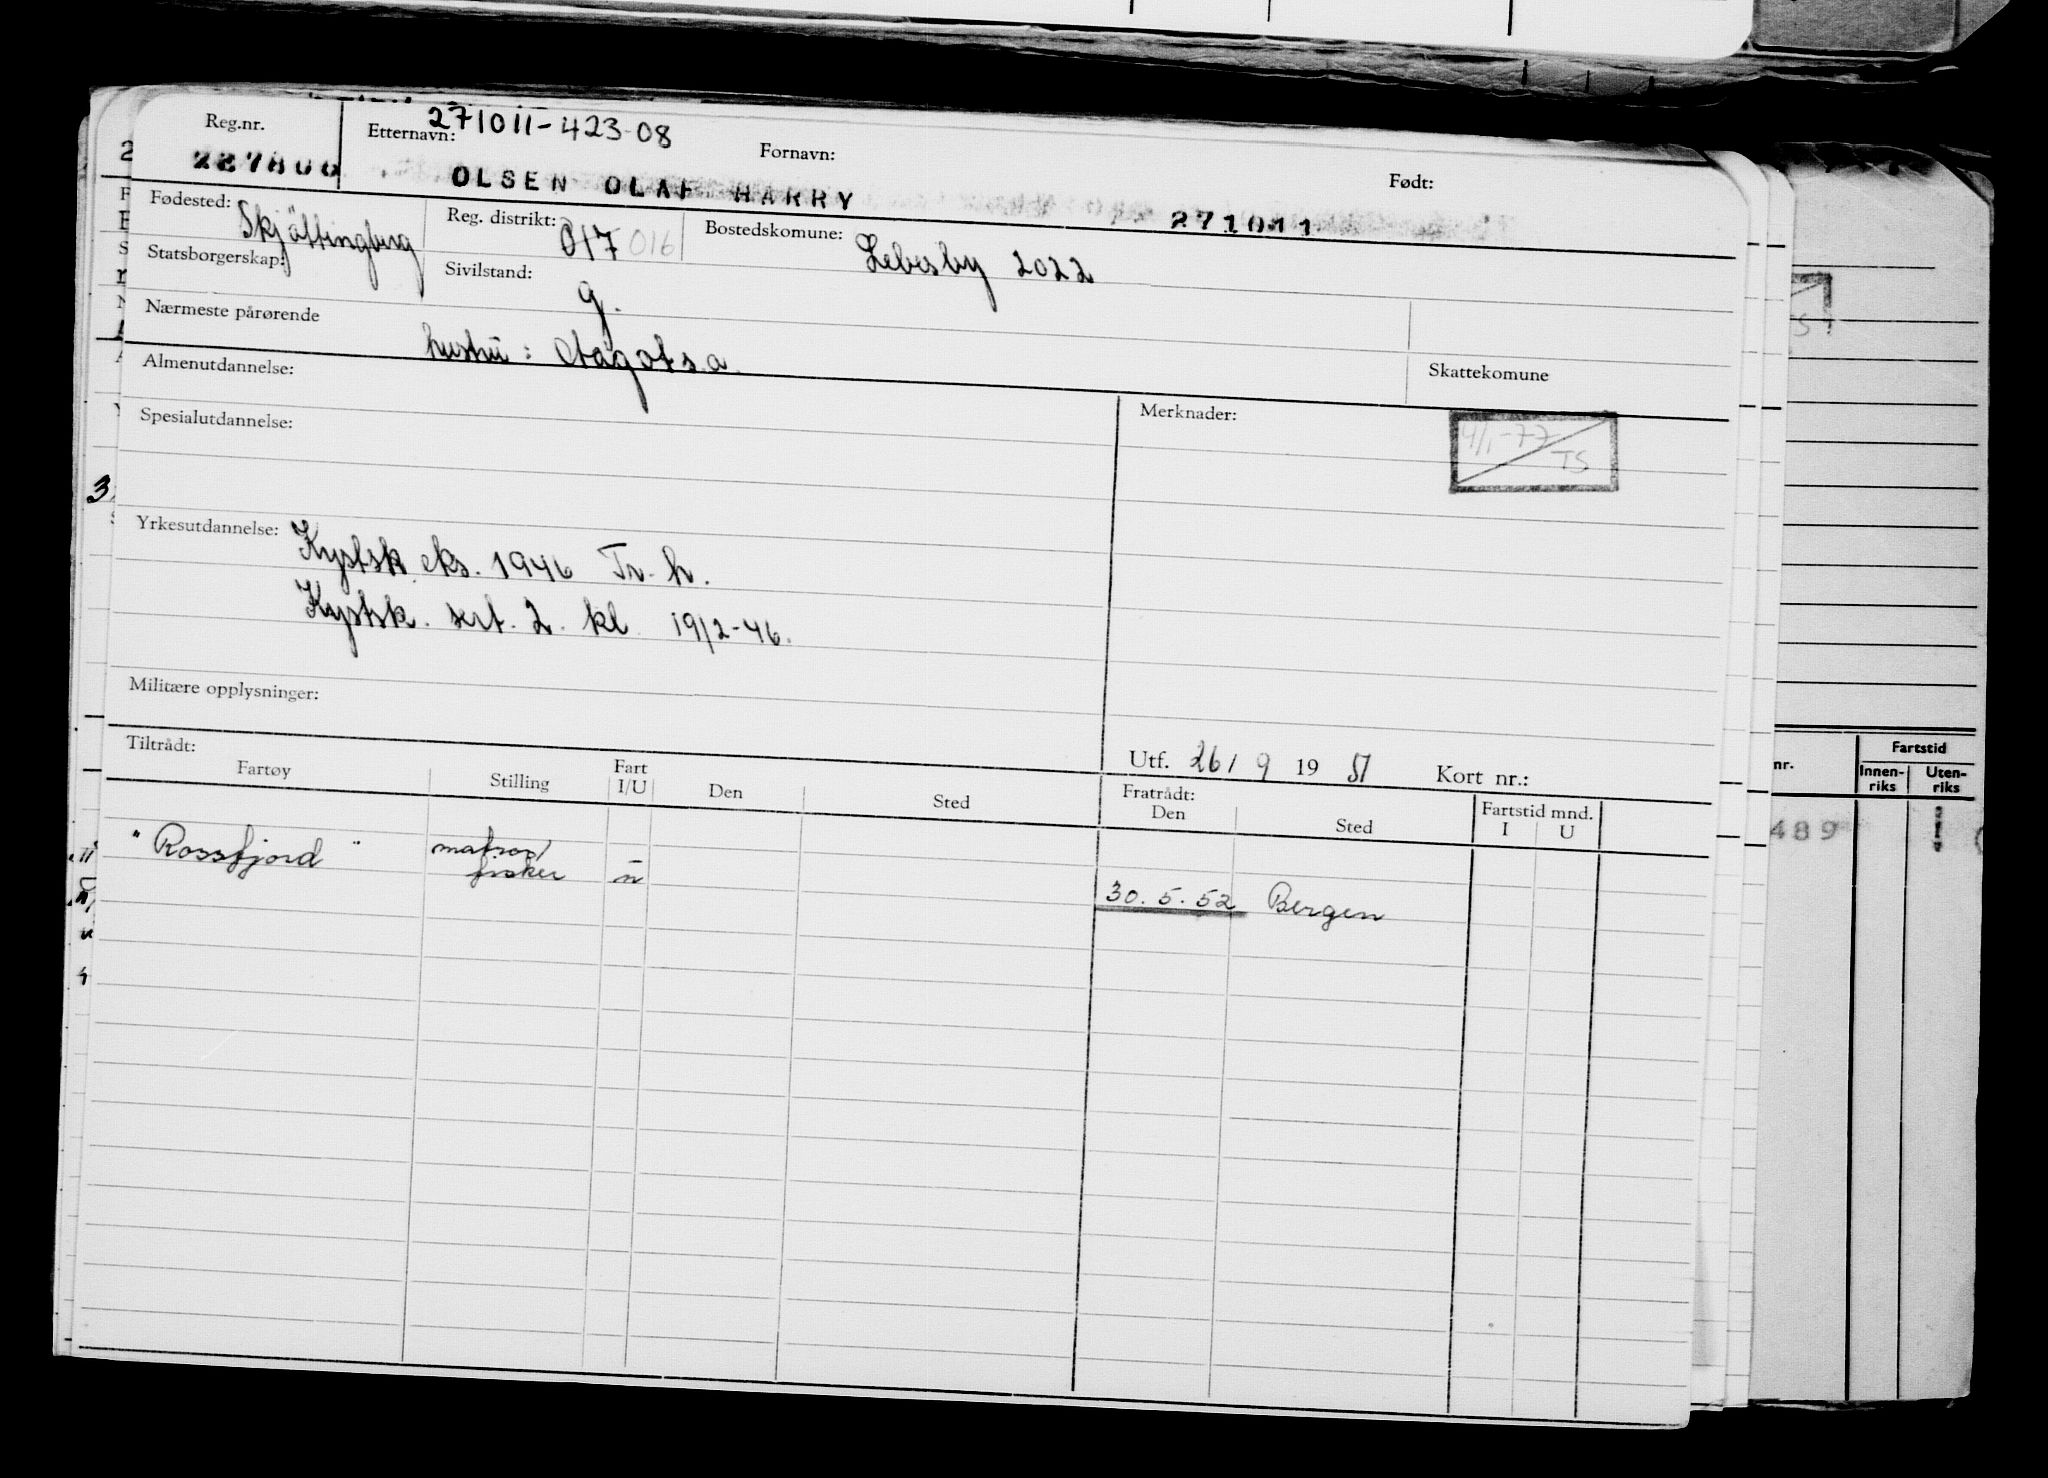 271011-423-08
Reg.nr. Etternavn: Fornavn: Født:
227800 OLSEN OLAF HARRY 271011
Fødested: Reg. distrikt: 017 016 Bostedskomune: Lebesby 2022
Statsborgerskap: Sivilstand: g.
Nærmeste pårørende
hustru: s.a.
Almenutdannelse: Skattekomune
Spesialutdannelse: Merknader:
4/1-77
TS
Yrkesutdannelse: Kystsk. eks. 1946 Tr.h.
Kystsk. sert. 2. kl. 19/2-46.
Militære opplysninger:
Tiltrådt: Utf. 26/9 19 51 Kort nr.:
Fartøy Stilling Fart I/U Den Sted Fratrådt: Den Sted Fartstid mnd. I U
"Rossfjord" matros/
fisker u
30.5.52 Bergen
nr. Fartstid
Innen-riks Uten-riks
489
3